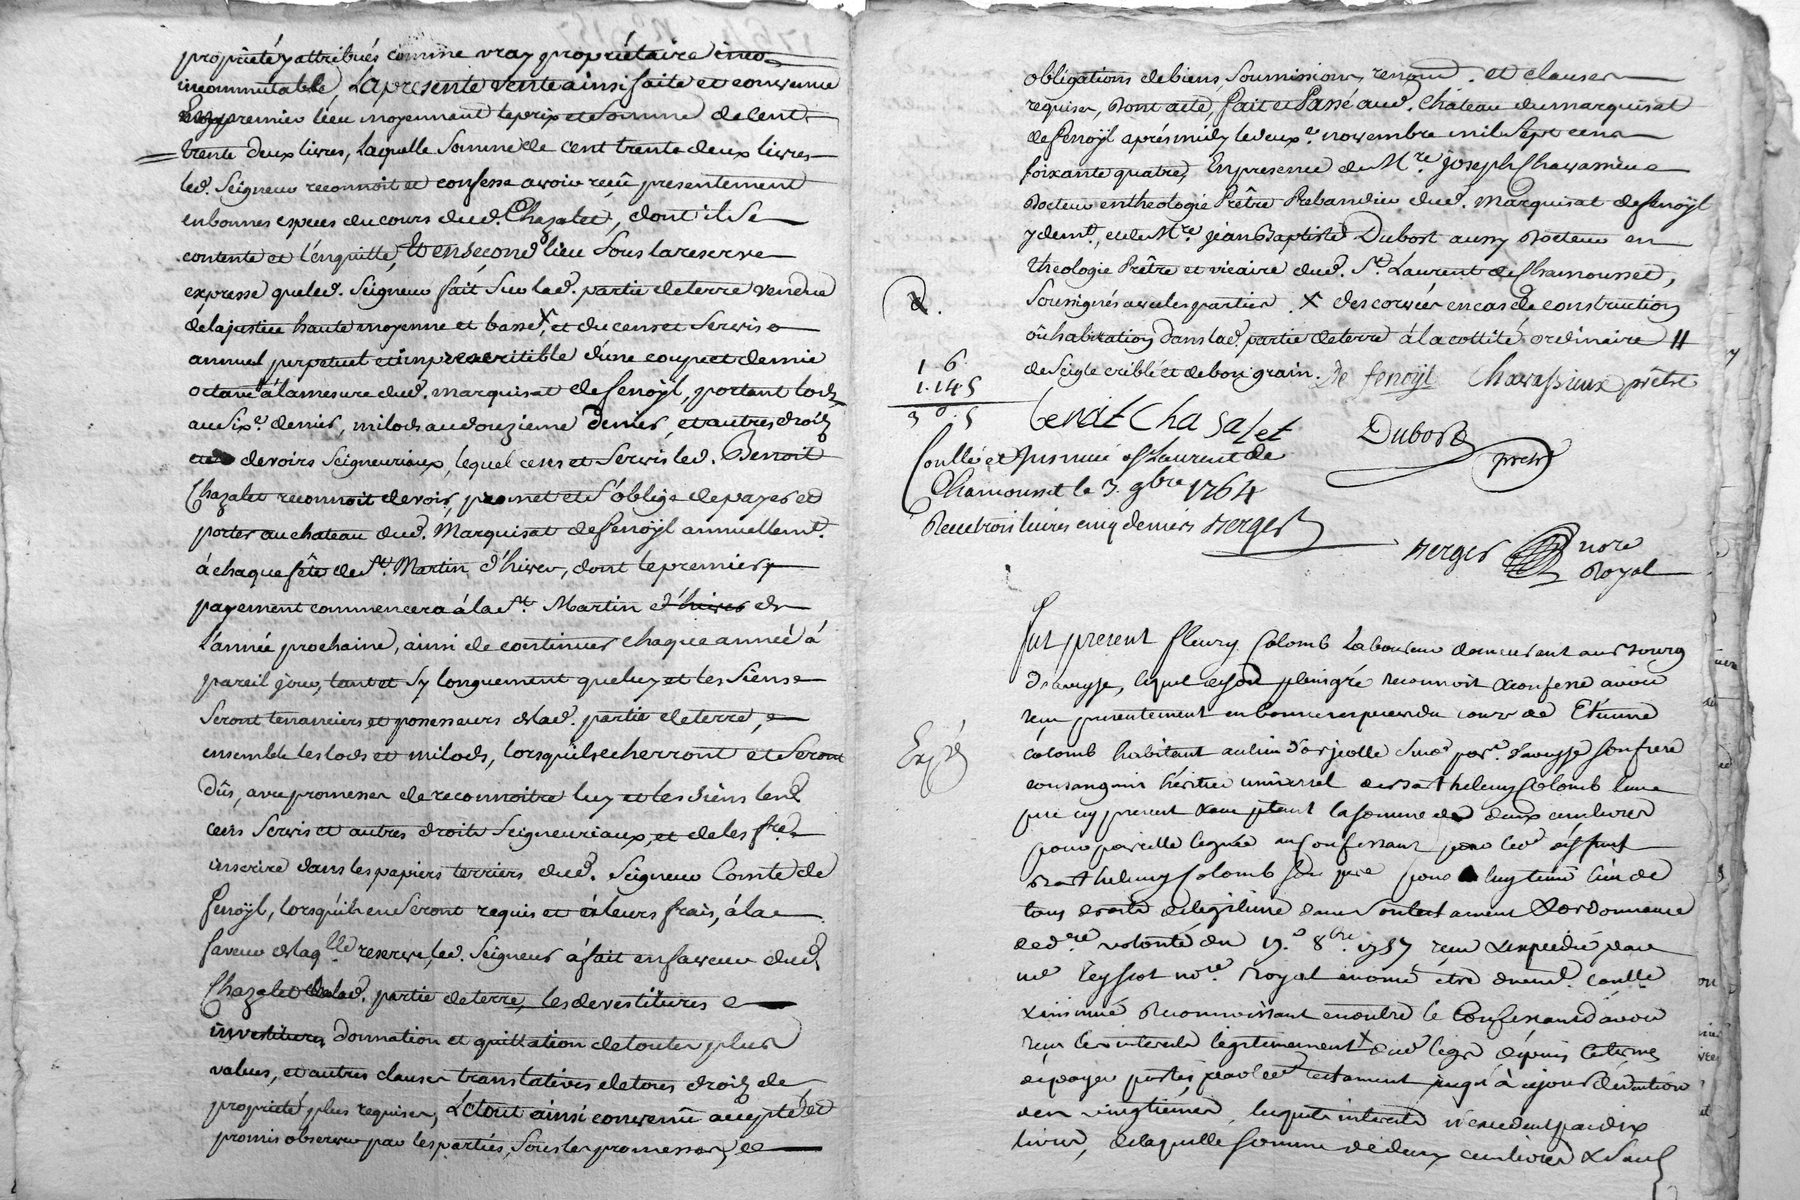 propriété y attribués comme vray propriétaire inco-
incommutable, La presente vente ainsi faite et convenue
en premier lieu moyennant le prix et Somme de Cent
trente deux livres, Laquelle Somme de cent trente deux livres
led. Seigneur reconnoit et confesse avoir reçû presentement
en bonnes especes du cours dud. Chazalet, dont il Se
contente et l'enquitte, Et en Second lieu Sous la reserve
expresse que led. Seigneur fait Sur lad. partie de terre vendue
de la justice haute moyenne et basse, X et du cens et Servis
annuel perpetuel et imprescritible d'une coupe et demie
octane à la mesure dud. marquisat de fenoÿl, portant lods
au Six.e denier, milods au douzieme denier, et autres droits
et devoirs Seigneuriaux, lequel cens et Servis led. Benoit
Chazalet reconnoit devoir, promet et S'oblige de payer et
porter au chateau dud. Marquisat de fenoÿl annuellemt.
à chaque fête de St. Martin d'hiver, dont le premier
payement commencera à la St. Martin d'hiver de
L'année prochaine, ainsi de continuer chaque année à
pareil jour, tant et Sy longuement que luy et les Siens
Seront tenanciers et possesseurs de lad. partie de terre,
ensemble les lods et milods, lorsqu'ils echerront et Seront
dûs, avec promesses de reconnoitre luy et les Siens led.
cens Servis et autres droits Seigneuriaux, et de les fre.
inscrire dans les papiers terriers dud. Seigneur Comte de
fenoÿl, lorsqu'ils en Seront requis et à leurs frais, à la
faveur de laq.lle reserve, led. Seigneur à fait en faveur dud.
Chazalet de lad. partie de terre, les devestitures
investitures donnation et quittation de toutes plus
values, et autres clauses translatives de tous droits de
propriété plus requises, Le tout ainsi convenu accepté et
promis observer par les parties, Sous les promesses,
obligations de biens, Soumissions, renond. et clauses
requises, Dont acte, fait et Passé aud. Château du marquisat
de fenoÿl après midy le deux.e novembre mil Sept cens
Soixante quatre, En presence de M.re Joseph Chavassieux
Docteur en theologie Prêtre Prebandier dud. Marquisat de fenoÿl
y demt., et de M.re Jean Baptiste Dubost aussy Docteur en
theologie Prêtre et vicaire dud. St. Laurent de Chamousset,
Soussignés avec les parties. X des corvées en cas de construction
où habitation dans lad. partie de terre à la cottité ordinaire //
de Seigle criblé et de bon grain. De fenoÿl Chavassieux prêtre
1 6
1.145
3 0.5
benoit Chasalet Dubost prêtre
Conllé et Insinué a St Laurent de
Chamousset le 3. 9bre 1764
Reçu trois livres cinq deniers Berger
Berger nore
Royal
Fut present fleury Colomb Laboureur demeurant au Bourg
d'aveyse, lequel de son plein gré reconnoit & confesse avoir
reçu presentement en bonnes especes du cours de Etienne
Colomb habitant au lieu d'orjeolle Susd. par.e d'aveyse son frere
consanguin héritier universel de Barthelemy Colomb leur
pere cy present & acceptant la somme de deux cens livres
pour pareille leguée au Confessant par led. deffunt
Barthelemy Colomb Son pere pour luy tenir lieu de
tous droits de légitime dans Son testament & ordonnance
de d.re volonté du 19.e 8bre 1757 reçu & expedié par
me. Teyssot no.re Royal énoncé être duemt. conllé
& insinué Reconnoissant en outre le Confessant avoir
reçu les interets légitimement X dud. legs depuis le terme
de payer portés par led. testament jusqu'à ce jour déduction
des vingtiemes lesquels interets n'excedent pas dix
livres, de laquelle Somme de deux cens livres & Sauf
Exp.é